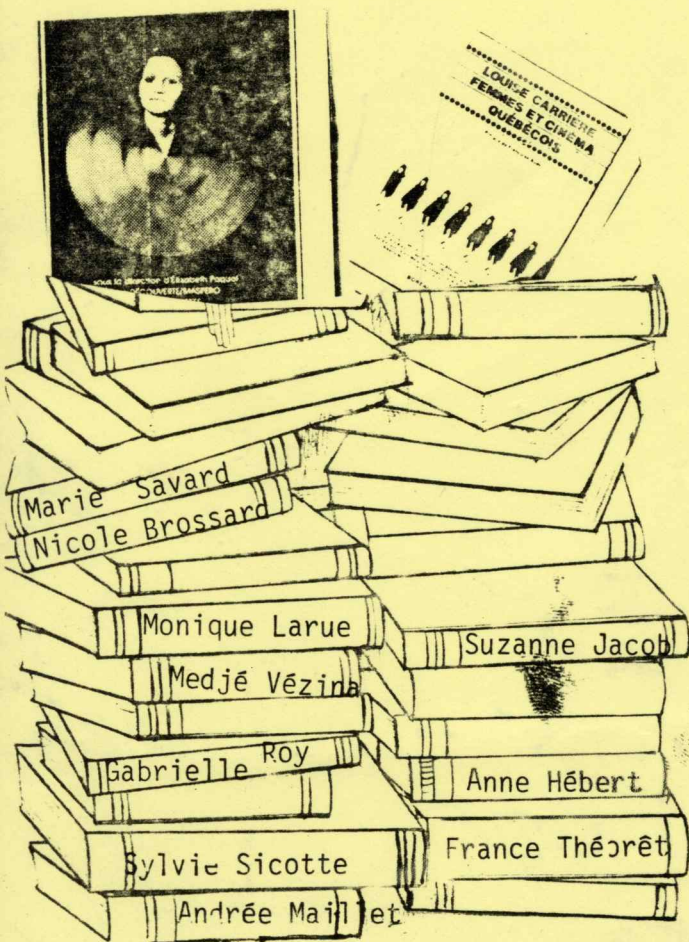 sous la direction d'Élisabeth Paquot
DÉCOUVERTE/MASPERO
LOUISE CARRIÈRE
FEMMES ET CINÉMA
QUÉBÉCOIS
Marie Savard
Nicole Brossard
Monique Larue
Medjé Vézina
Gabrielle Roy
Sylvie Sicotte
Andrée Maillet
Suzanne Jacob
Anne Hébert
France Théorêt